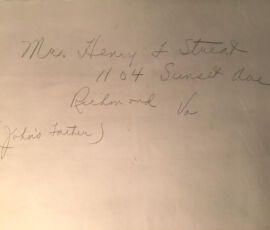 Mrs. Henry L Streat
1104 Sunset Ave
Richmond Va
(John's Father)